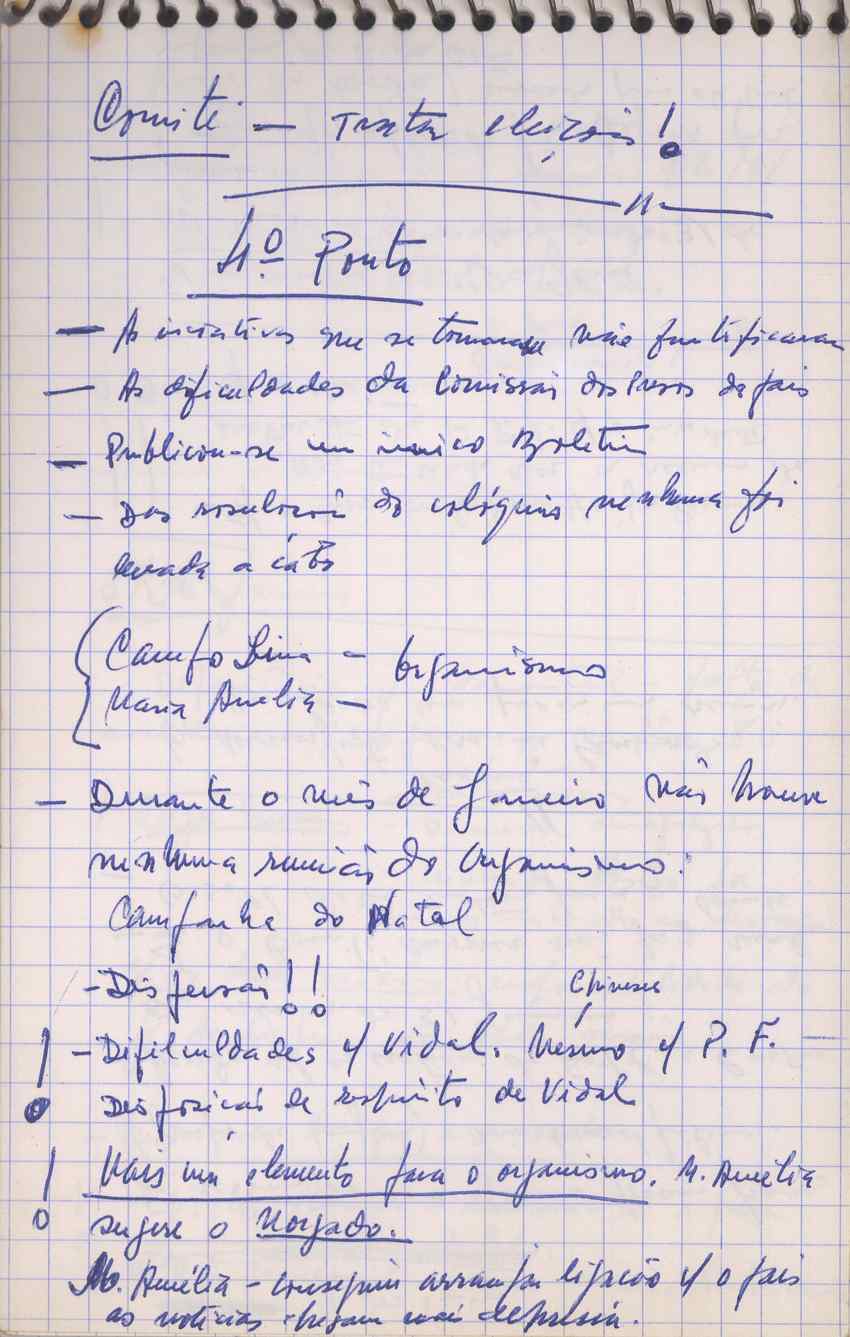 Comité — Tratar eleições!
4º Ponto
— As iniciativas que se tomaram não frutificaram
— As dificuldades da Comissão dos Presos do país
— Publicou-se um único Boletim
— Das resoluções do colóquio nenhuma foi
levada a cabo
Campo Lima — Organismo
Maria Amélia —
— Durante o mês de Janeiro não houve
nenhuma reunião do Organismo.
Campanha do Natal
- Dispersão!!
Chineses
! - Dificuldades c/ Vidal. Mesmo c/ P. F. —
Disposição de espírito de Vidal
! Mais um elemento para o organismo. M. Amélia
sugere o Morgado.
M. Amélia - conseguir arranjar ligação c/ o país
as notícias chegam mais depressa.